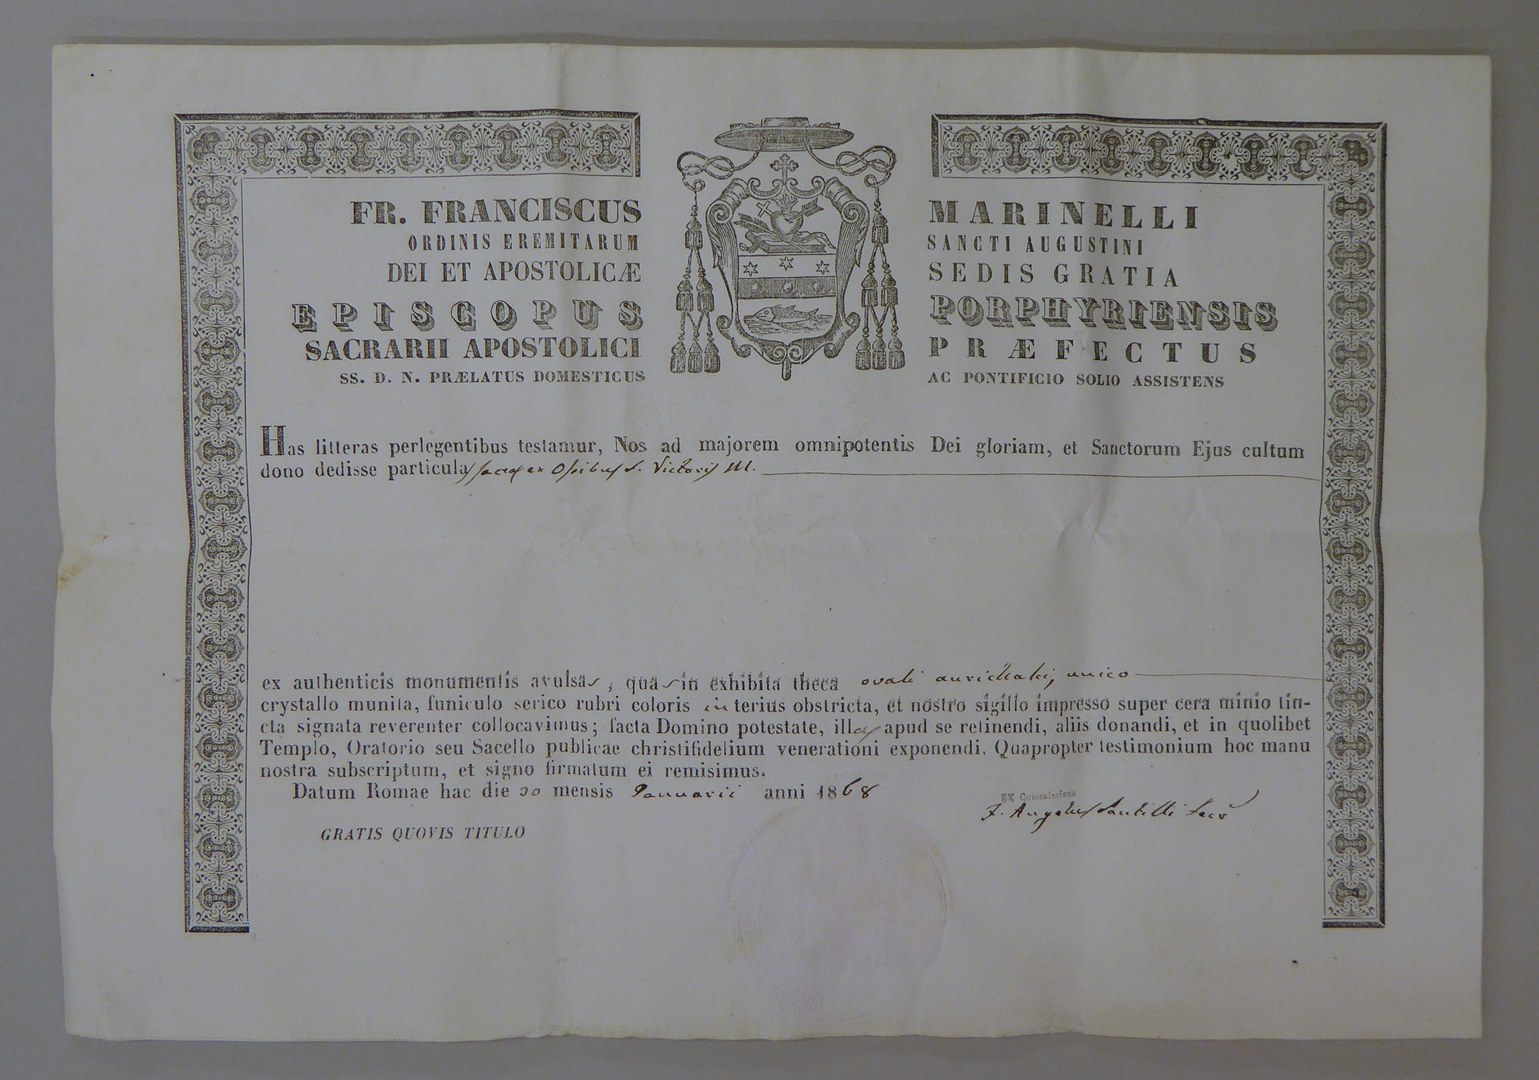 FR. FRANCISCUS MARINELLI
ORDINIS EREMITARUM SANCTI AUGUSTINI
DEI ET APOSTOLICÆ SEDIS GRATIA
EPISCOPUS PORPHYRIENSIS
SACRARII APOSTOLICI PRÆFECTUS
SS. D. N. PRÆLATUS DOMESTICUS AC PONTIFICIO SOLIO ASSISTENS
Has litteras perlegentibus testamur, Nos ad majorem omnipotentis Dei gloriam, et Sanctorum Ejus cultum
dono dedisse particulas sacas ex Ossibus S. Victoris M.
ex authenticis monumentis avulsas, quas in exhibita theca ovali aurichalci, unico
crystallo munita, funiculo serico rubri coloris interius obstricta, et nostro sigillo impresso super cera minio tin-
cta signata reverenter collocavimus; facta Domino potestate, illas apud se retinendi, aliis donandi, et in quolibet
Templo, Oratorio seu Sacello publicae christifidelium venerationi exponendi. Quapropter testimonium hoc manu
nostra subscriptum, et signo firmatum ei remisimus.
Datum Romae hac die 20 mensis Januarii anni 1868
EX Commissione
F. Angelus Santilli Secr
GRATIS QUOVIS TITULO